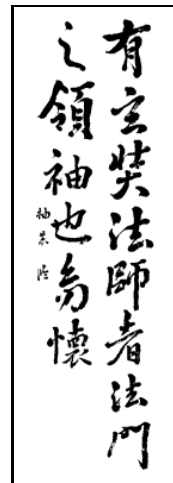 有玄奘法師者法門
之領袖也幼懷